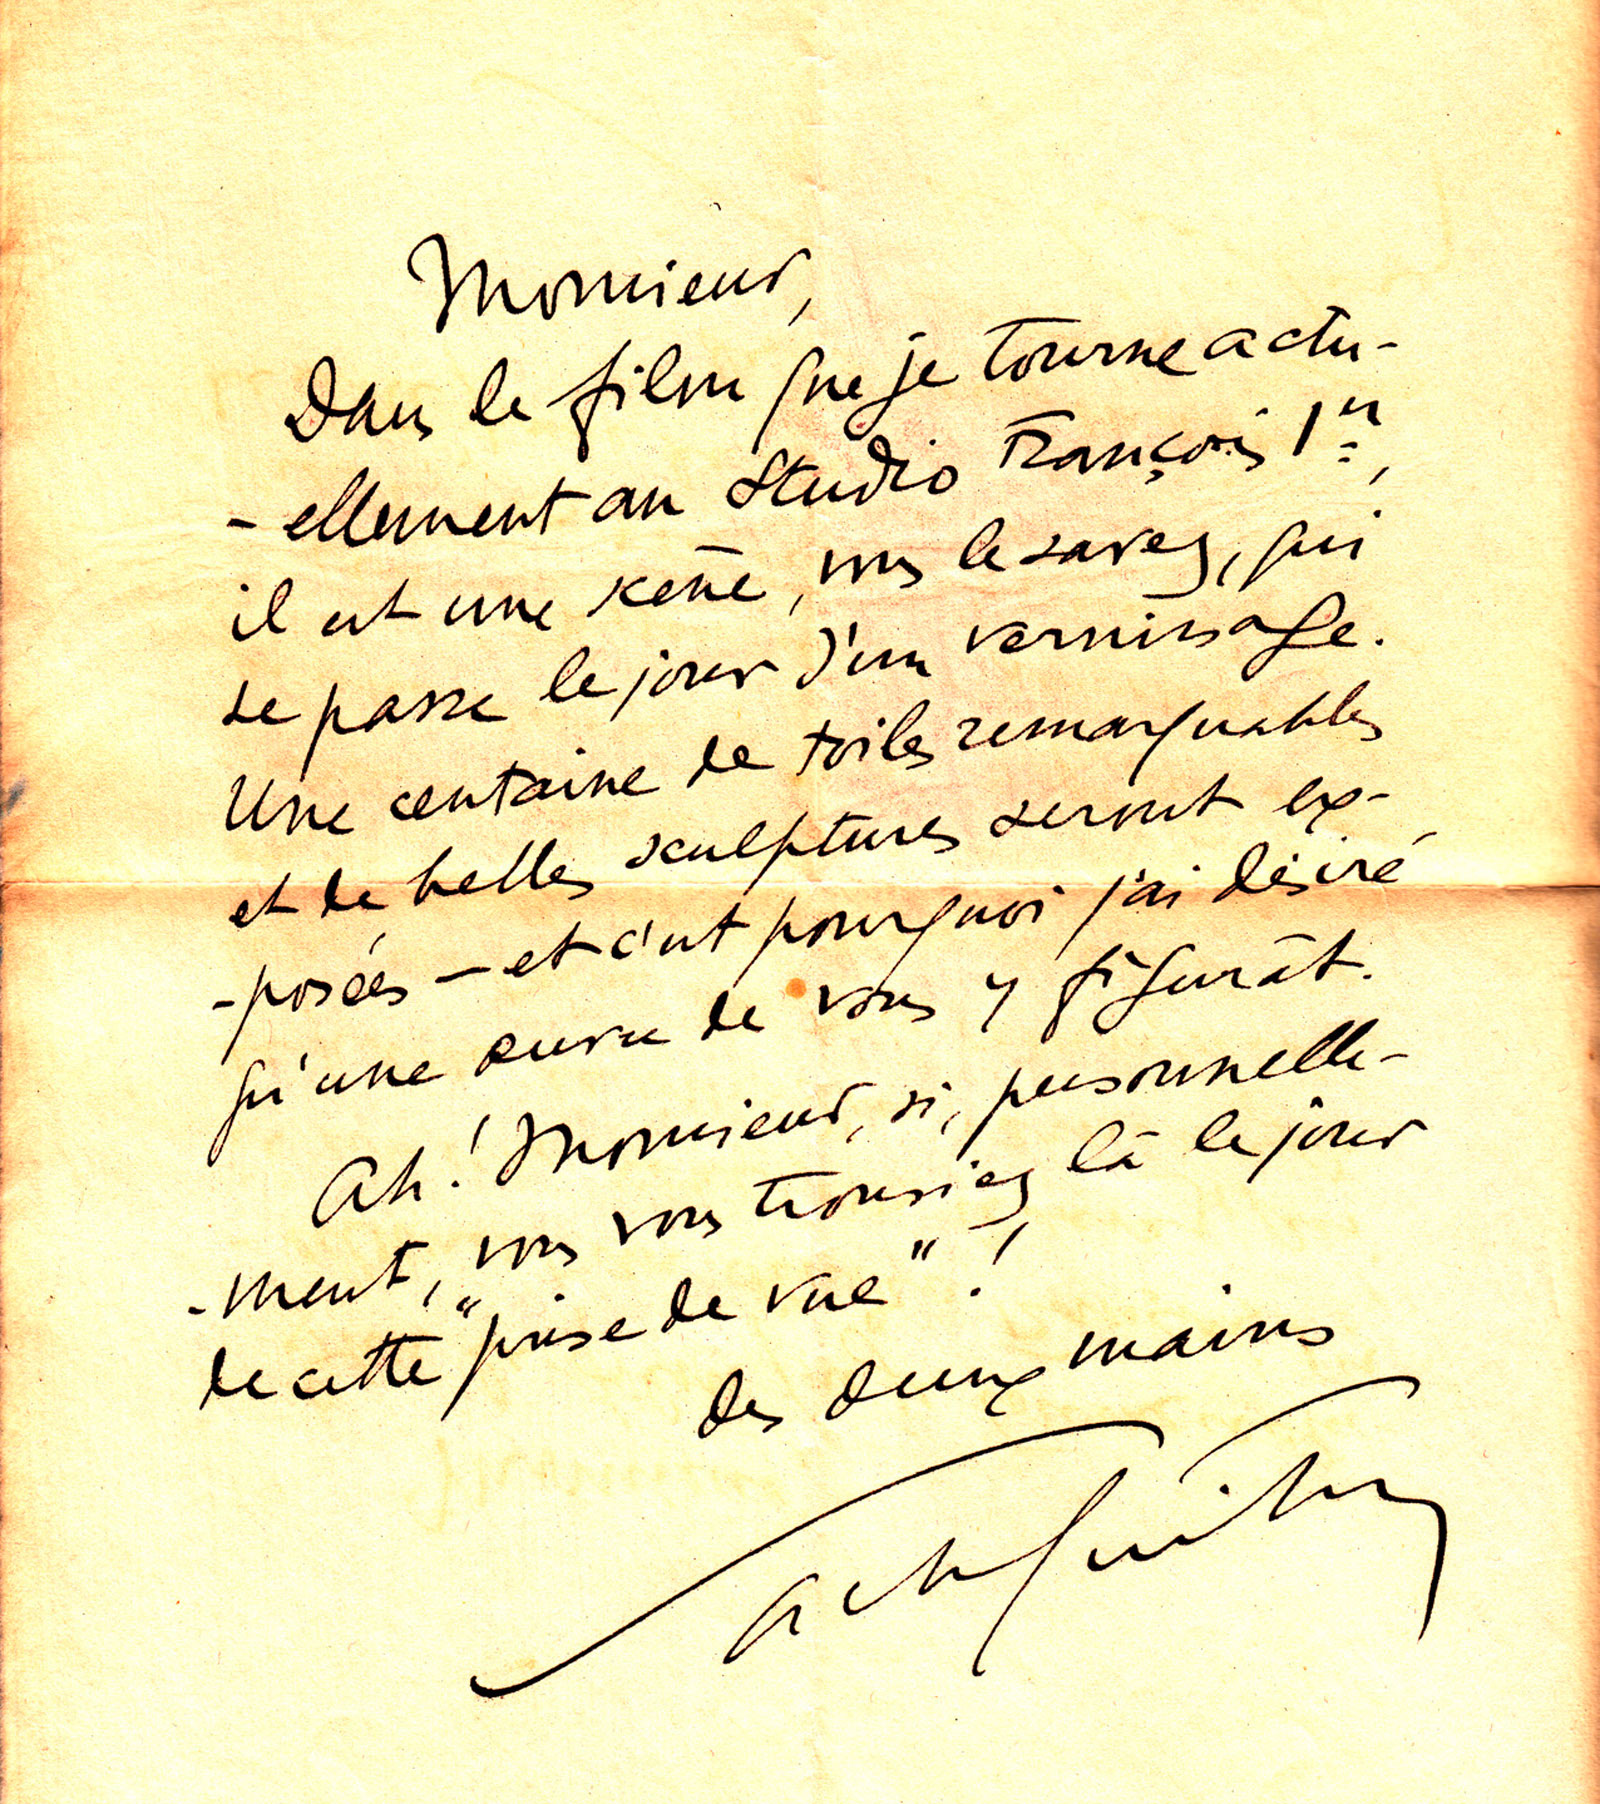 Monsieur,
Dans le film que je tourne actu-
-ellement au Studio François 1er,
il est une scène, vous le savez, qui
se passe le jour d'un vernissage.
Une centaine de toiles remarquables
et de belles sculptures seront ex-
-posées — et c'est pourquoi j'ai désiré
qu'une œuvre de vous y figurât.
Ah! Monsieur, si, personnelle-
-ment, vous vous trouviez là le jour
de cette "prise de vue"!
des deux mains
Sacha Guitry